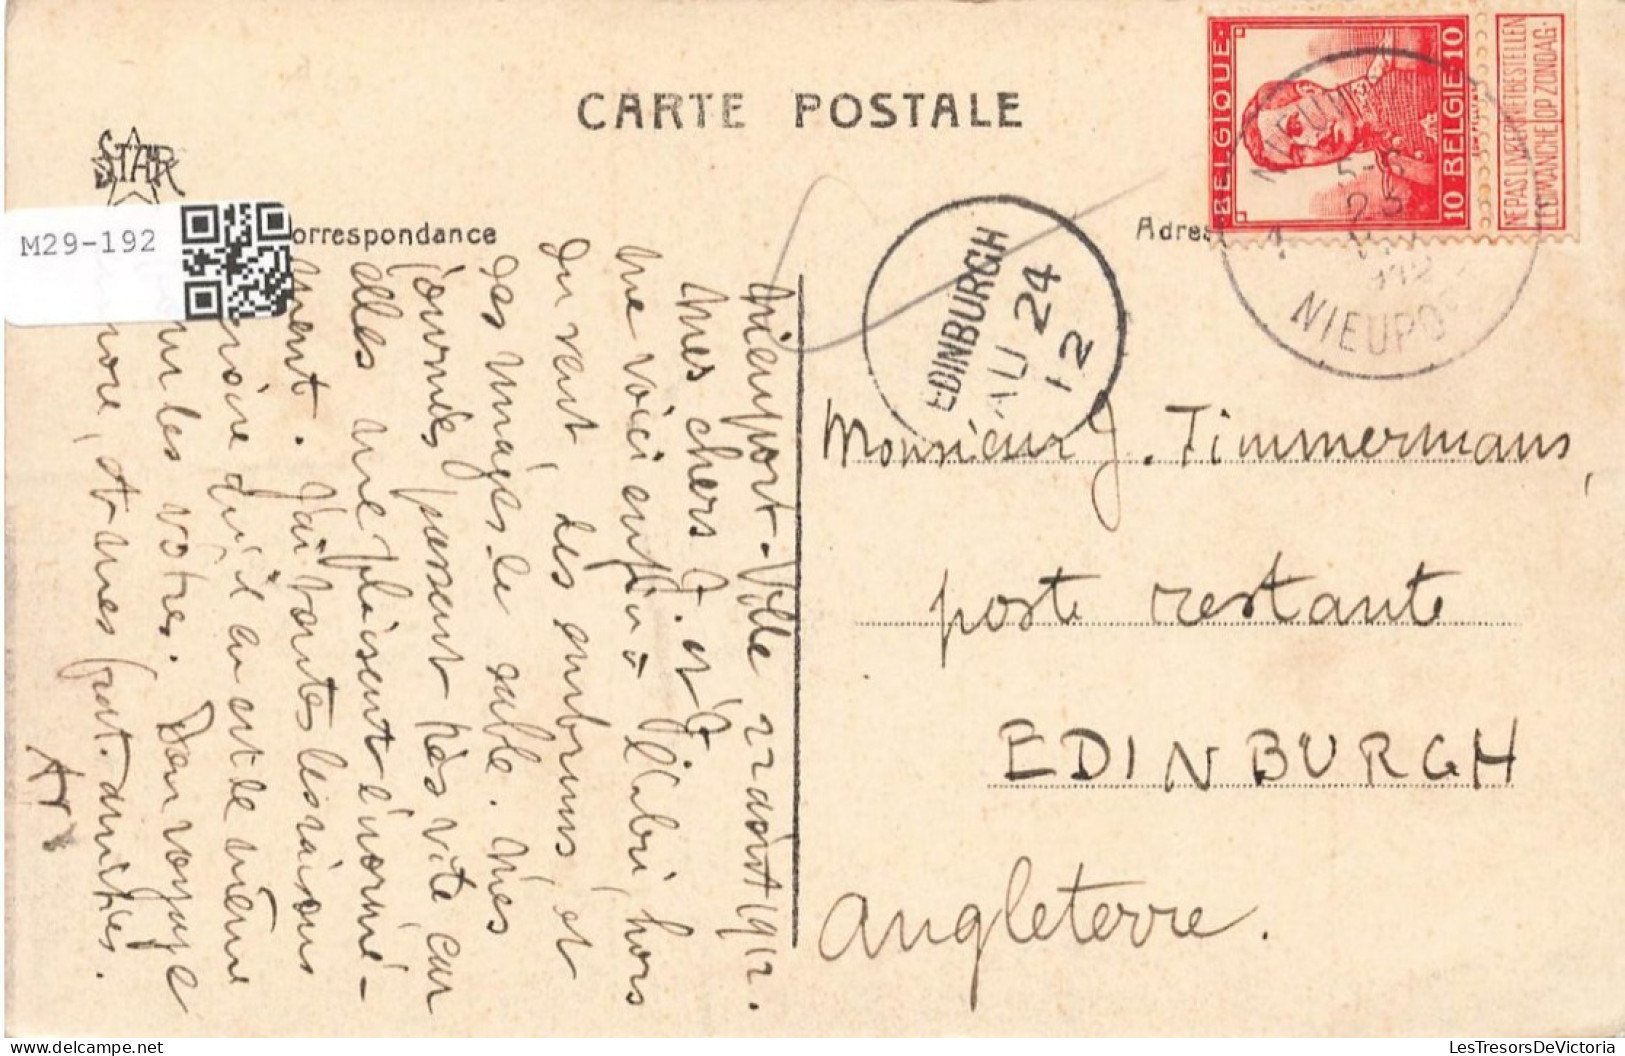 CARTE POSTALE
STAR
M29-192
orrespondance
Adres
BELGIQUE
10 BELGIË 10
NE PAS LIVRER LE DIMANCHE
NIET BESTELLEN OP ZONDAG
NIEUPO
EDINBURGH
AU 24
12
Nieuport-Ville 22 août 1912.
Mes chers J. et J.
Me voici enfin à l'abri, hors
du vent, des embruns, et
des nuages de sable. Mes
journées passent très vite car
elles me plaisent énormé-
ment. J'ai toutes les raisons
croire qu'il en est de même
les vôtres. Bon voyage
encore, et mes faut. amitiés.
Ar
Monsieur J. Timmermans,
poste restante
EDINBURGH
Angleterre.
LesTresorsDeVictoria